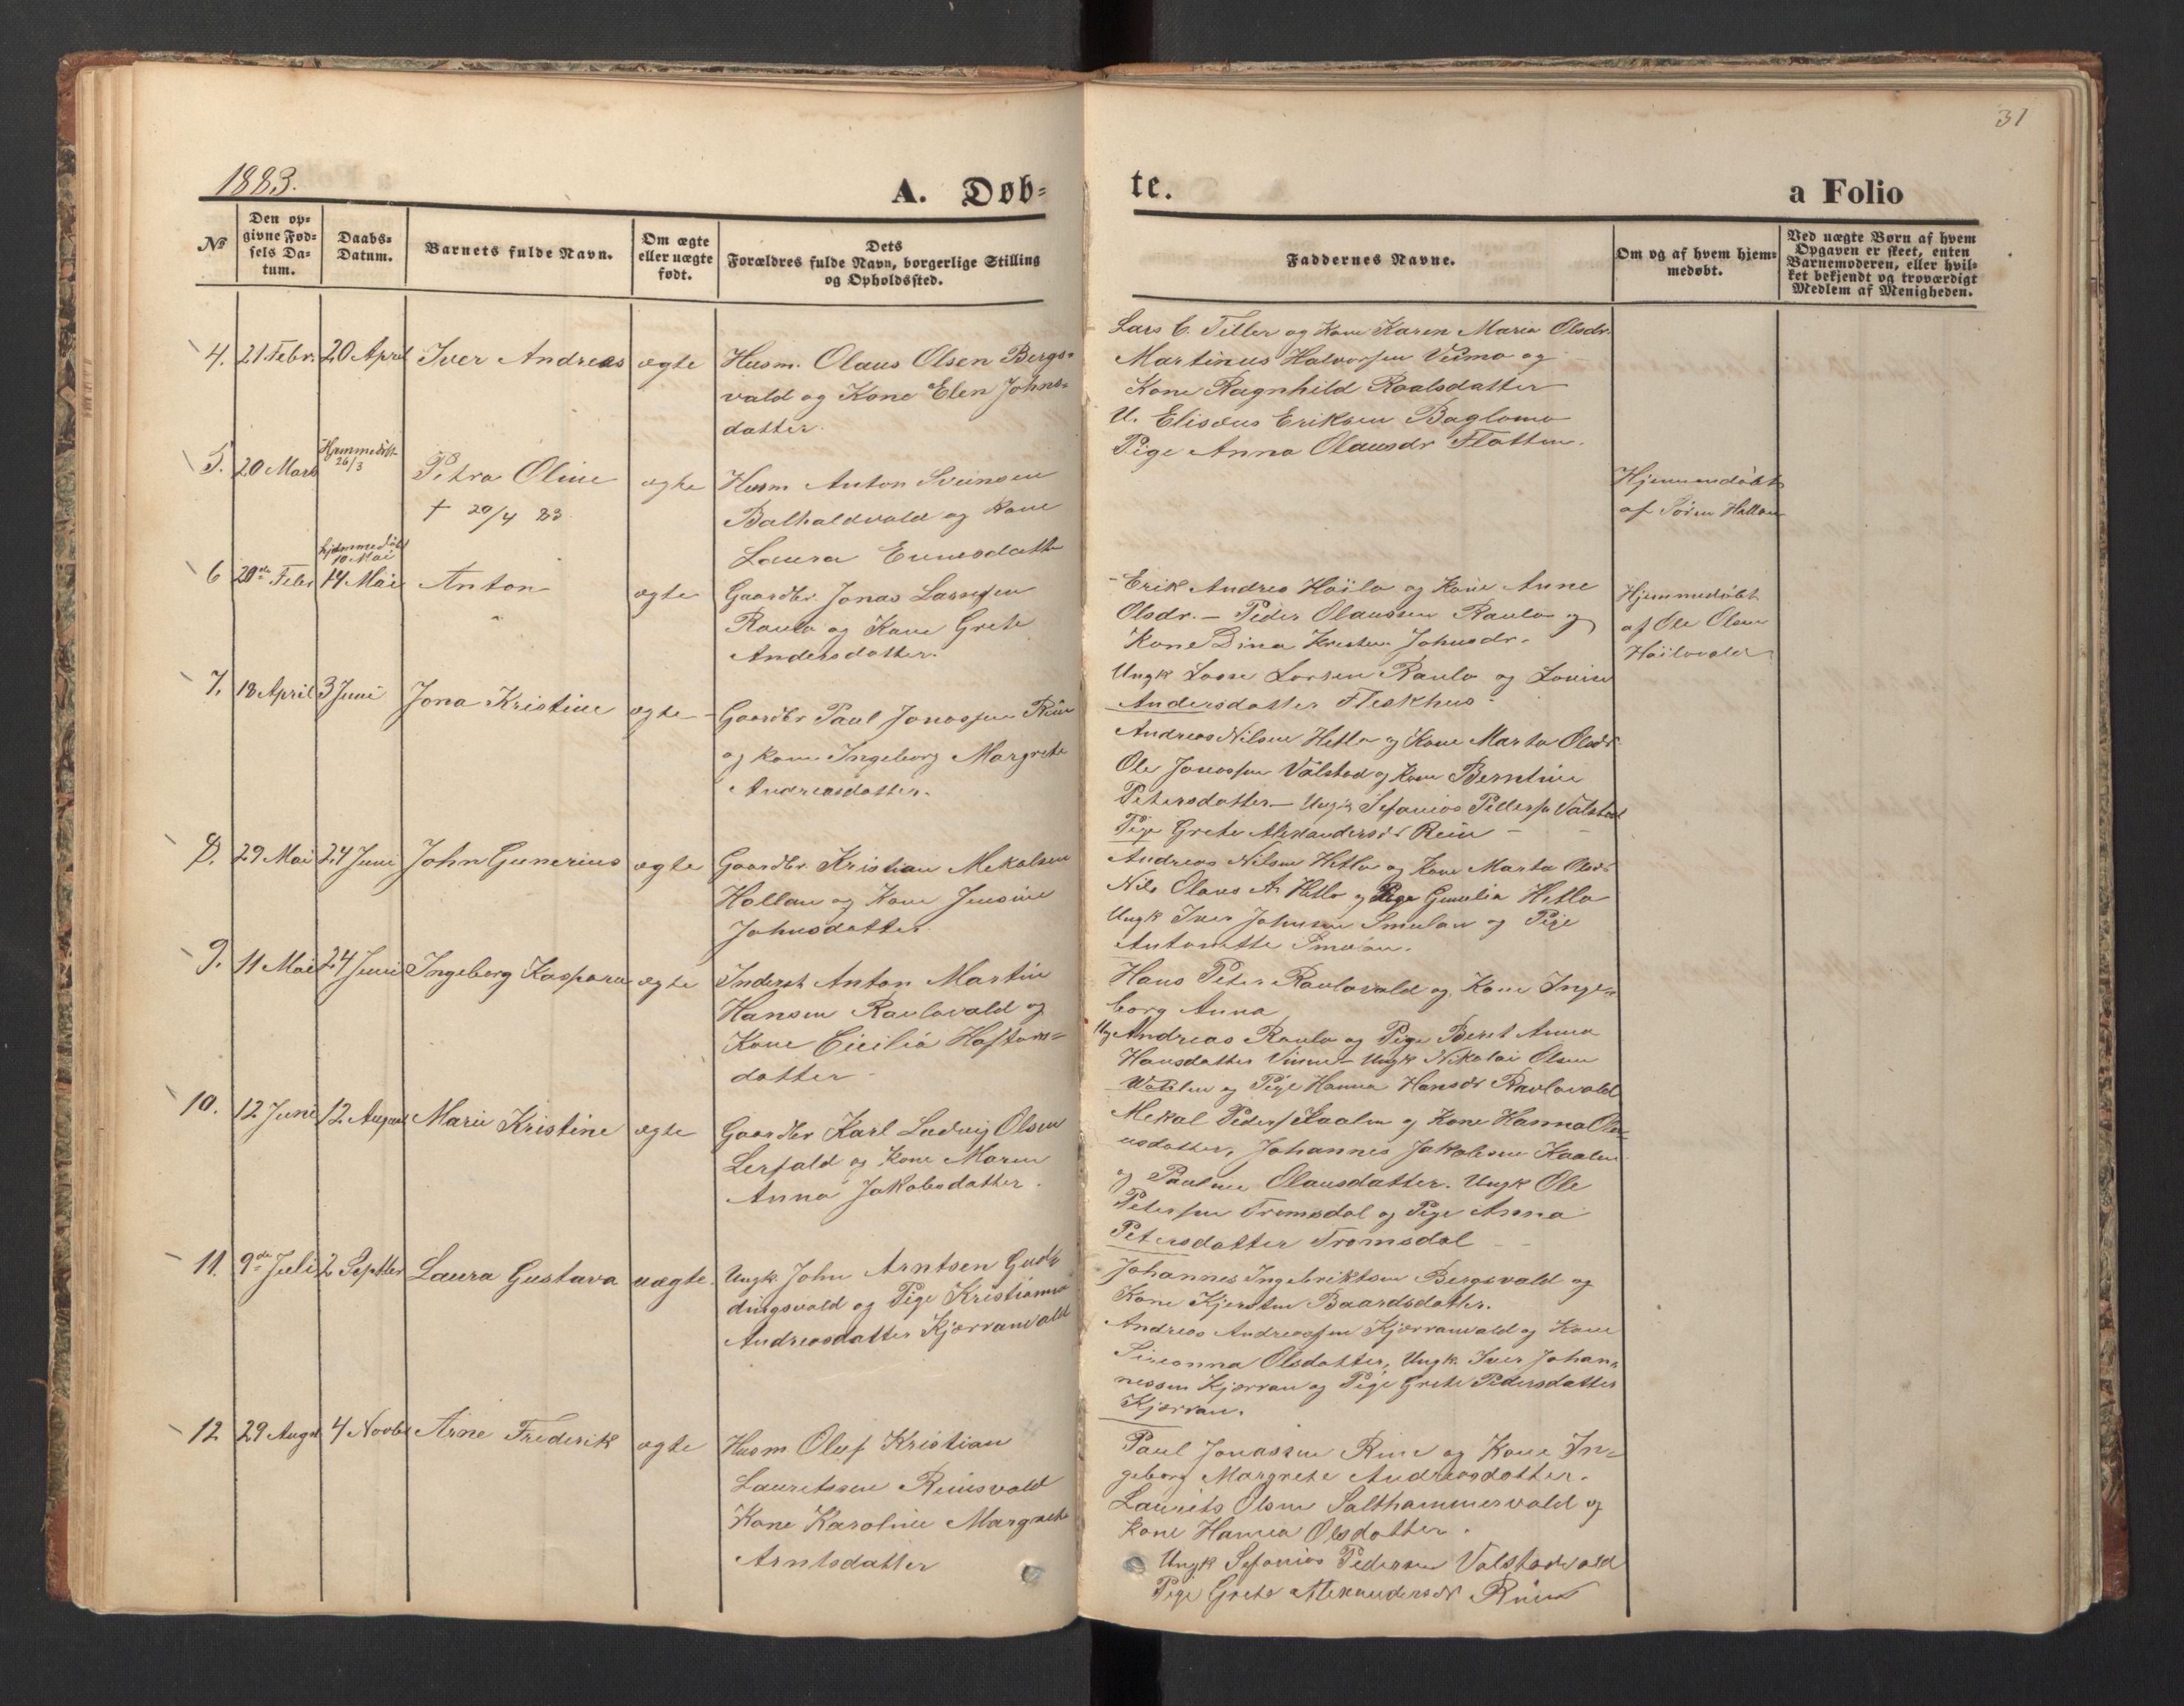 31
1883.
A. Døb=
te.
a Folio
No
Den op=
givne Fød=
sels Da=
tum.
Daabs=
Datum.
Barnets fulde Navn.
Om ægte
eller uægte
født.
Dets
Forældres fulde Navn, borgerlige Stilling
og Opholdssted.
Faddernes Navne.
Om og af hvem hjem=
medøbt.
Ved uægte Børn af hvem
Opgaven er skeet, enten
Barnemoderen, eller hvil=
ket bekjendt og troværdigt
Medlem af Menigheden.
4. 21 Febr. 20 April Iver Andreas ægte
Husm. Olaus Olsen Bergs=
vald og Kone Elen Johns=
datter.
Lars C. Tiller og Kone Karen Maria Olsdr.
Martinus Halvorsen Vismo og
Kone Ragnhild Roalsdatter
U. Elisæus Eriksen Baglomo
Pige Anna Olausdr Flotten.
5. 20 Mars Hjemmedøbt
26/3
Petra Oline ægte
† 20/4 83
Husm Anton Sveinsen
Balhaldvald og Kone
Laura
Hjemmedøbt
af Søren Hallan
6 20de Febr hjemmedøbt
10 Mai
14 Mai Anton ægte
Gaardbr. Jonas Larssen
Raulo og Kone Grete
Andersdatter.
Erik Andreas Høilo og Kone Anne
Olsdr. - Peder Olaussen Raulo og
Kone Dina Kristine Johnsdr.
Ungk Lasse Larsen Raulo og Lovise
Andersdatter Fleskhus.
Hjemmedøbt
af Ole Olsen
Høilovald
7. 18 April 3 Juni Jona Kristine ægte
Gaardbr Paul Jonassen Rein
og kone Ingeborg Margrete
Andreasdatter.
Andreas Nilsen Hetlo og Kone Marta Olsdr
Ole Jonassen Valstad og Kone Berntine
Petersdatter - Ungk Sefanias Peders. Valstad
Pige Grete Alexandersdr Rein -
8. 29 Mai 24 Juni John Gunerius ægte
Gaardbr Kristian Mekalsen
Hallan og Kone Jensine
Johnsdatter.
Andreas Nilsen Hetlo og Kone Marta Olsdr
Nils Olaus A. Hetlo og Pige Gunelia Hetlo
Ungk Iver Johnsen Smulan og Pige
Antonette Smulan.
9. 11 Mai 24 Juni Ingeborg Kaspara ægte
Inderst Anton Martin
Hansen Raulovald og
Kone Cicilia Haftors=
datter -
Hans Peter Raulovald og Kone Inge=
borg Anna
Ung Andreas Raulo og Pige Beret Anna
Hansdatter Vinne - Ungk Nikolai Olsen
og Pige Hanna Hansdr Raulovald
10. 12 Juni 12 August Marie Kristine ægte
Gaardbr Karl Ludvig Olsen
Lerfald og Kone Maren
Anna Jakobsdatter.
Mekal Peders. Kaalen og Kone Hanna Ole=
usdatter, Johannes Jakobsen Kaalen
og Pauline Olausdatter. Ungk Ole
Petersen Tromsdal og Pige Anna
Petersdatter Tromsdal
11. 9de Juli 2 Septbr Laura Gustava uægte.
Ungk. John Arntsen Gud=
dingsvald og Pige Kristianna
Andreasdatter Kjærranvald
Johannes Ingebriktsen Bergsvald og
Kone Kjersten Baardsdatter.
Andreas Andreassen Kjærranvald og Kone
Sireanna Olsdatter, Ungk. Iver Johan=
nessen Kjærran og Pige Grete Pedersdatter
Kjærran.
12 29 Augst 4 Novbr Arne Frederik ægte
Husm Oluf Kristian
Lauritssen Reinsvald
Kone Karoline Margrete
Arntsdatter
Paul Jonassen Rein og Kone In=
geborg Margrete Andreasdatter.
Laurits Olsen Salthammervald og
kone Hanna Olsdatter.
Ungk Sefanias Pedersen Valstadvald
Pige Grete Alexandersdr Rein